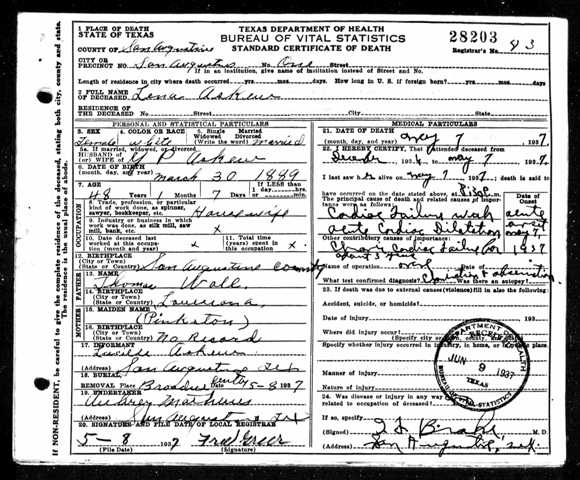 1 PLACE OF DEATH
STATE OF TEXAS
TEXAS DEPARTMENT OF HEALTH
BUREAU OF VITAL STATISTICS
STANDARD CERTIFICATE OF DEATH
28203
Registrar's No. 83
COUNTY OF San Augustine
CITY OR
PRECINCT NO. San Augustine No. One Street
If in an institution, give name of institution instead of Street and No.
Length of residence in city where death occurred yrs. mos. days. How long in U. S. if foreign born? yrs. mos. days.
2 FULL NAME
OF DECEASED Lena Askew
RESIDENCE OF
THE DECEASED No. Street City State
If NON-RESIDENT, be careful to give the complete residence of the deceased, stating both city, county and state.
The residence is the usual place of abode.
PERSONAL AND STATISTICAL PARTICULARS
3. SEX
Female
4. COLOR OR RACE
White
5. Single Married
Widowed Divorced
(Write the word) married
5a. If married, widowed or divorced,
HUSBAND OF
(or) WIFE OF P Askew
6. DATE OF BIRTH
(month, day, and year) March 30 1889
7. AGE
48 Years 1 Months 7 Days
If LESS than
1 day hrs.
min.
OCCUPATION
8. Trade, profession, or particular
kind of work done, as spinner,
sawyer, bookkeeper, etc. House wife
9. Industry or business in which
work was done, as silk mill, saw
mill, bank, etc. x
10. Date deceased last
worked at this occupation
(month and year)
11. Total time
(years) spent in
this occupation x
12. BIRTHPLACE
(City or Town)
(State or Country) San Augustine County
FATHER
13. NAME
Thomas Wall
14. BIRTHPLACE
(City or Town)
(State or Country) Louisiana
MOTHER
15. MAIDEN NAME
(Pinkston)
16. BIRTHPLACE
(City or Town)
(State or Country) No Record
17. INFORMANT
Lucille Askew
(Address) San Augustine Tex
18. BURIAL
REMOVAL Place Broadus Date 5-8 1937
19. UNDERTAKER
(Address) San Augustine Tex
20. SIGNATURE AND FILE DATE OF LOCAL REGISTRAR
5-8 1937 Fred Greer
MEDICAL PARTICULARS
21. DATE OF DEATH
(month, day, year) May 7 1937
22. I HEREBY CERTIFY, That I attended deceased from
December 1936 to May 7 1937.
I last saw h alive on May 7 1937, death is said to
have occurred on the date stated above, at 8:30 P.m.
The principal cause of death and related causes of importance were as follows:
Date of
Onset
Cardiac Failure with acute
acute Cardiac Dilatation
Other contributory causes of importance:
1937
Name of operation none
What test confirmed diagnosis? Was there an autopsy?
23. If death was due to external causes (violence) fill in also the following:
Accident, suicide, or homicide?
Date of injury 193
Where did injury occur?
Specify whether injury occurred in industry, in home, or in public place
Manner of injury
Nature of injury
24. Was disease or injury in any way
related to occupation of deceased?
If so, specify
(Signed) M. D.
(Address) San Augustine, Tex.
DEPARTMENT OF HEALTH
REC'D
JUN 9 1937
TEXAS
BUREAU OF VITAL STATISTICS